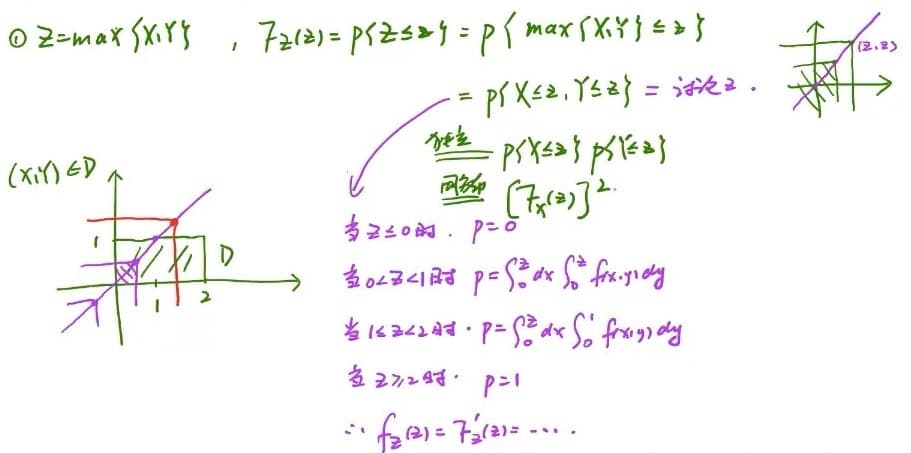 ① Z=max{X,Y} , F_Z(z)=P{Z≤z}=P{max{X,Y}≤z}
(z,z)
=P{X≤z,Y≤z}=讨论z.
独立 P{X≤z}P{Y≤z}
同分布 [F_X(z)]².
(X,Y)∈D
1
D
1 2
当z≤0时. P=0
当0<z<1时 P=∫₀ᶻdx∫₀ᶻf(x,y)dy
当1≤z<2时. P=∫₀ᶻdx∫₀¹f(x,y)dy
当z≥2时. P=1
∴ f_Z(z)=F_Z'(z)=....